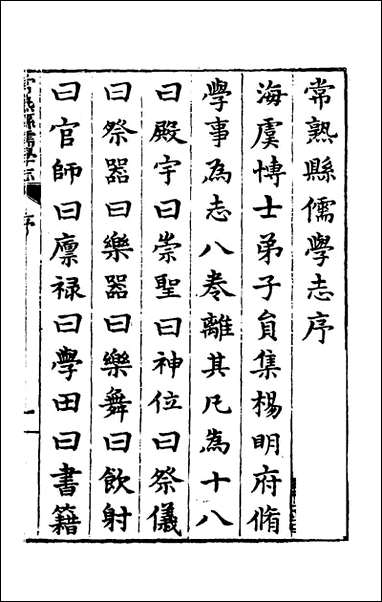 常熟縣儒學志序
海虞博士弟子員集楊明府脩
學事為志八卷離其凡為十八
曰殿宇曰崇聖曰神位曰祭儀
曰祭器曰樂器曰樂舞曰飲射
曰官師曰廪祿曰學田曰書籍
常熟縣儒學志
序
一